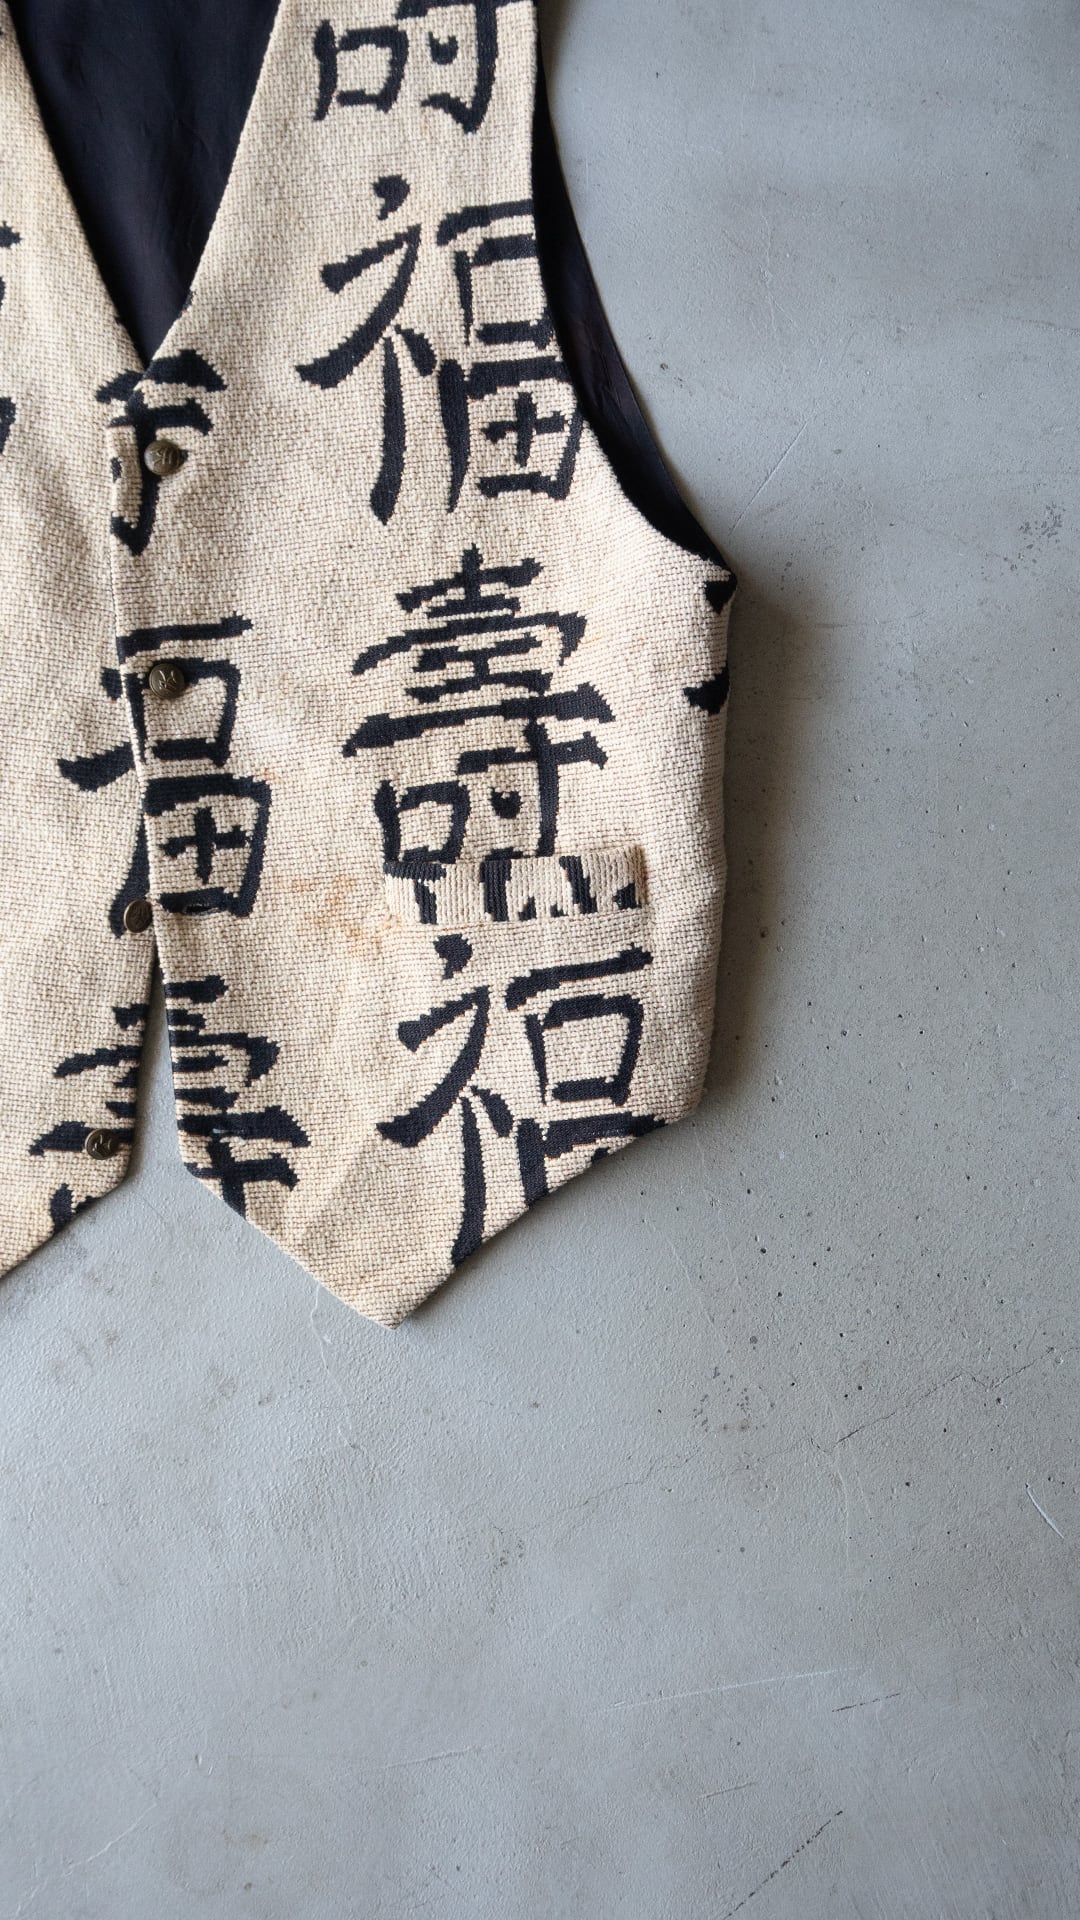 壽
福
壽
福
福
壽